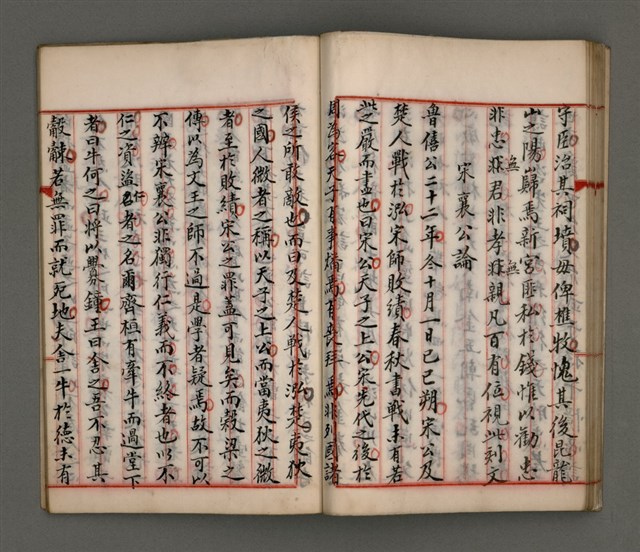 守臣治其祠墳毋俾樵牧愧其後昆龍
山之陽巋焉新宮匪私於錢惟以勸忠
非忠無君非孝無親凡百有位視此刻文
宋襄公論
魯僖公二十二年冬十月一日己巳朔宋公及
楚人戰於泓宋師敗績春秋書戰未有若
此之嚴而盡也曰宋公天子之上公宋先代之後於
周為客天子有事膰焉有喪拜焉非列國諸
侯之所敢敵也而曰及楚人戰於泓楚夷狄
之國人微者之稱以天子之上公而當夷狄之微
者至於敗績宋公之罪蓋可見矣而穀梁之
傳以為文王之師不過是學者疑焉故不可以
不辨宋襄公非獨行仁義而不終者也以不
仁之資盜仁者之名爾齊桓有牽牛而過堂下
者曰牛何之曰將以釁鐘王曰舍之吾不忍其
觳觫若無罪而就死地夫舍一牛於德未有